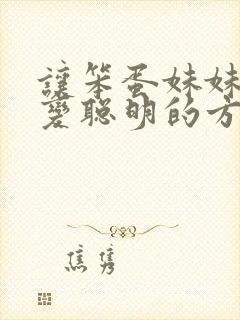 讓笨蛋妹妹
變聰明的方
焦雋